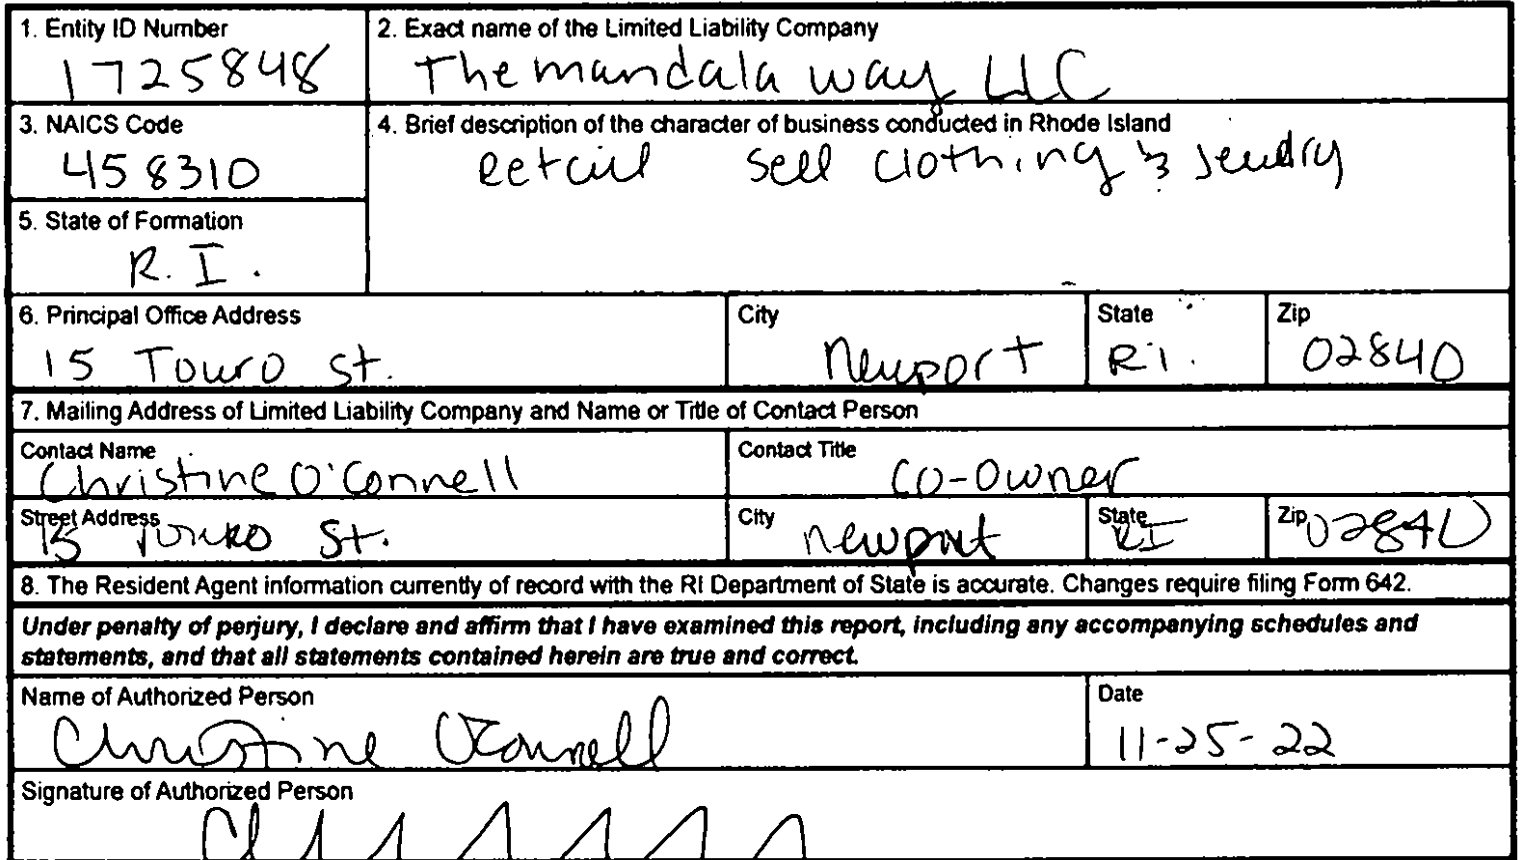 1. Entity ID Number
1725848
2. Exact name of the Limited Liability Company
The mandala way LLC
3. NAICS Code
458310
4. Brief description of the character of business conducted in Rhode Island
Retail sell clothing & Jewelry
5. State of Formation
R.I.
6. Principal Office Address
15 Touro St.
City
Newport
State
RI.
Zip
02840
7. Mailing Address of Limited Liability Company and Name or Title of Contact Person
Contact Name
Christine O'Connell
Contact Title
CO-Owner
Street Address
15 Touro St.
City
newport
State
RI
Zip
02840
8. The Resident Agent information currently of record with the RI Department of State is accurate. Changes require filing Form 642.
Under penalty of perjury, I declare and affirm that I have examined this report, including any accompanying schedules and
statements, and that all statements contained herein are true and correct.
Name of Authorized Person
Christine O'Connell
Date
11-25-22
Signature of Authorized Person